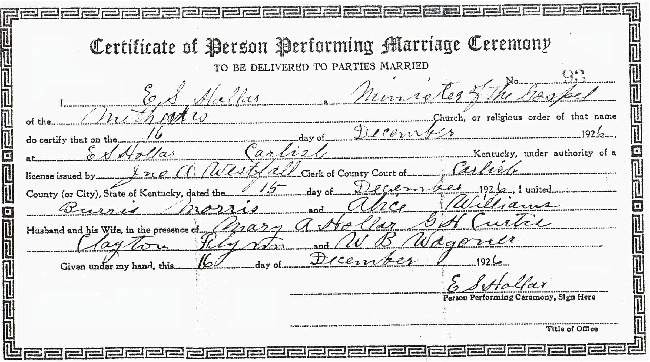 Certificate of Person Performing Marriage Ceremony
TO BE DELIVERED TO PARTIES MARRIED
No. 93
I, E. S. Hollar a Minister of the Gospel
of the Church, or religious order of that name
do certify that on the 16 day of December 1926
at E S Hollar Carlisle Kentucky, under authority of a
license issued by Jno A Westfall Clerk of County Court of Carlisle
County (or City), State of Kentucky, dated the 15 day of December 1926, I united
Burris Morris and Alice Williams
Husband and his Wife, in the presence of Mary A Hollar G H Curtis
Clayton and W B Wagoner
Given under my hand, this 16 day of December 1926
E S Hollar
Person Performing Ceremony, Sign Here
Title of Office